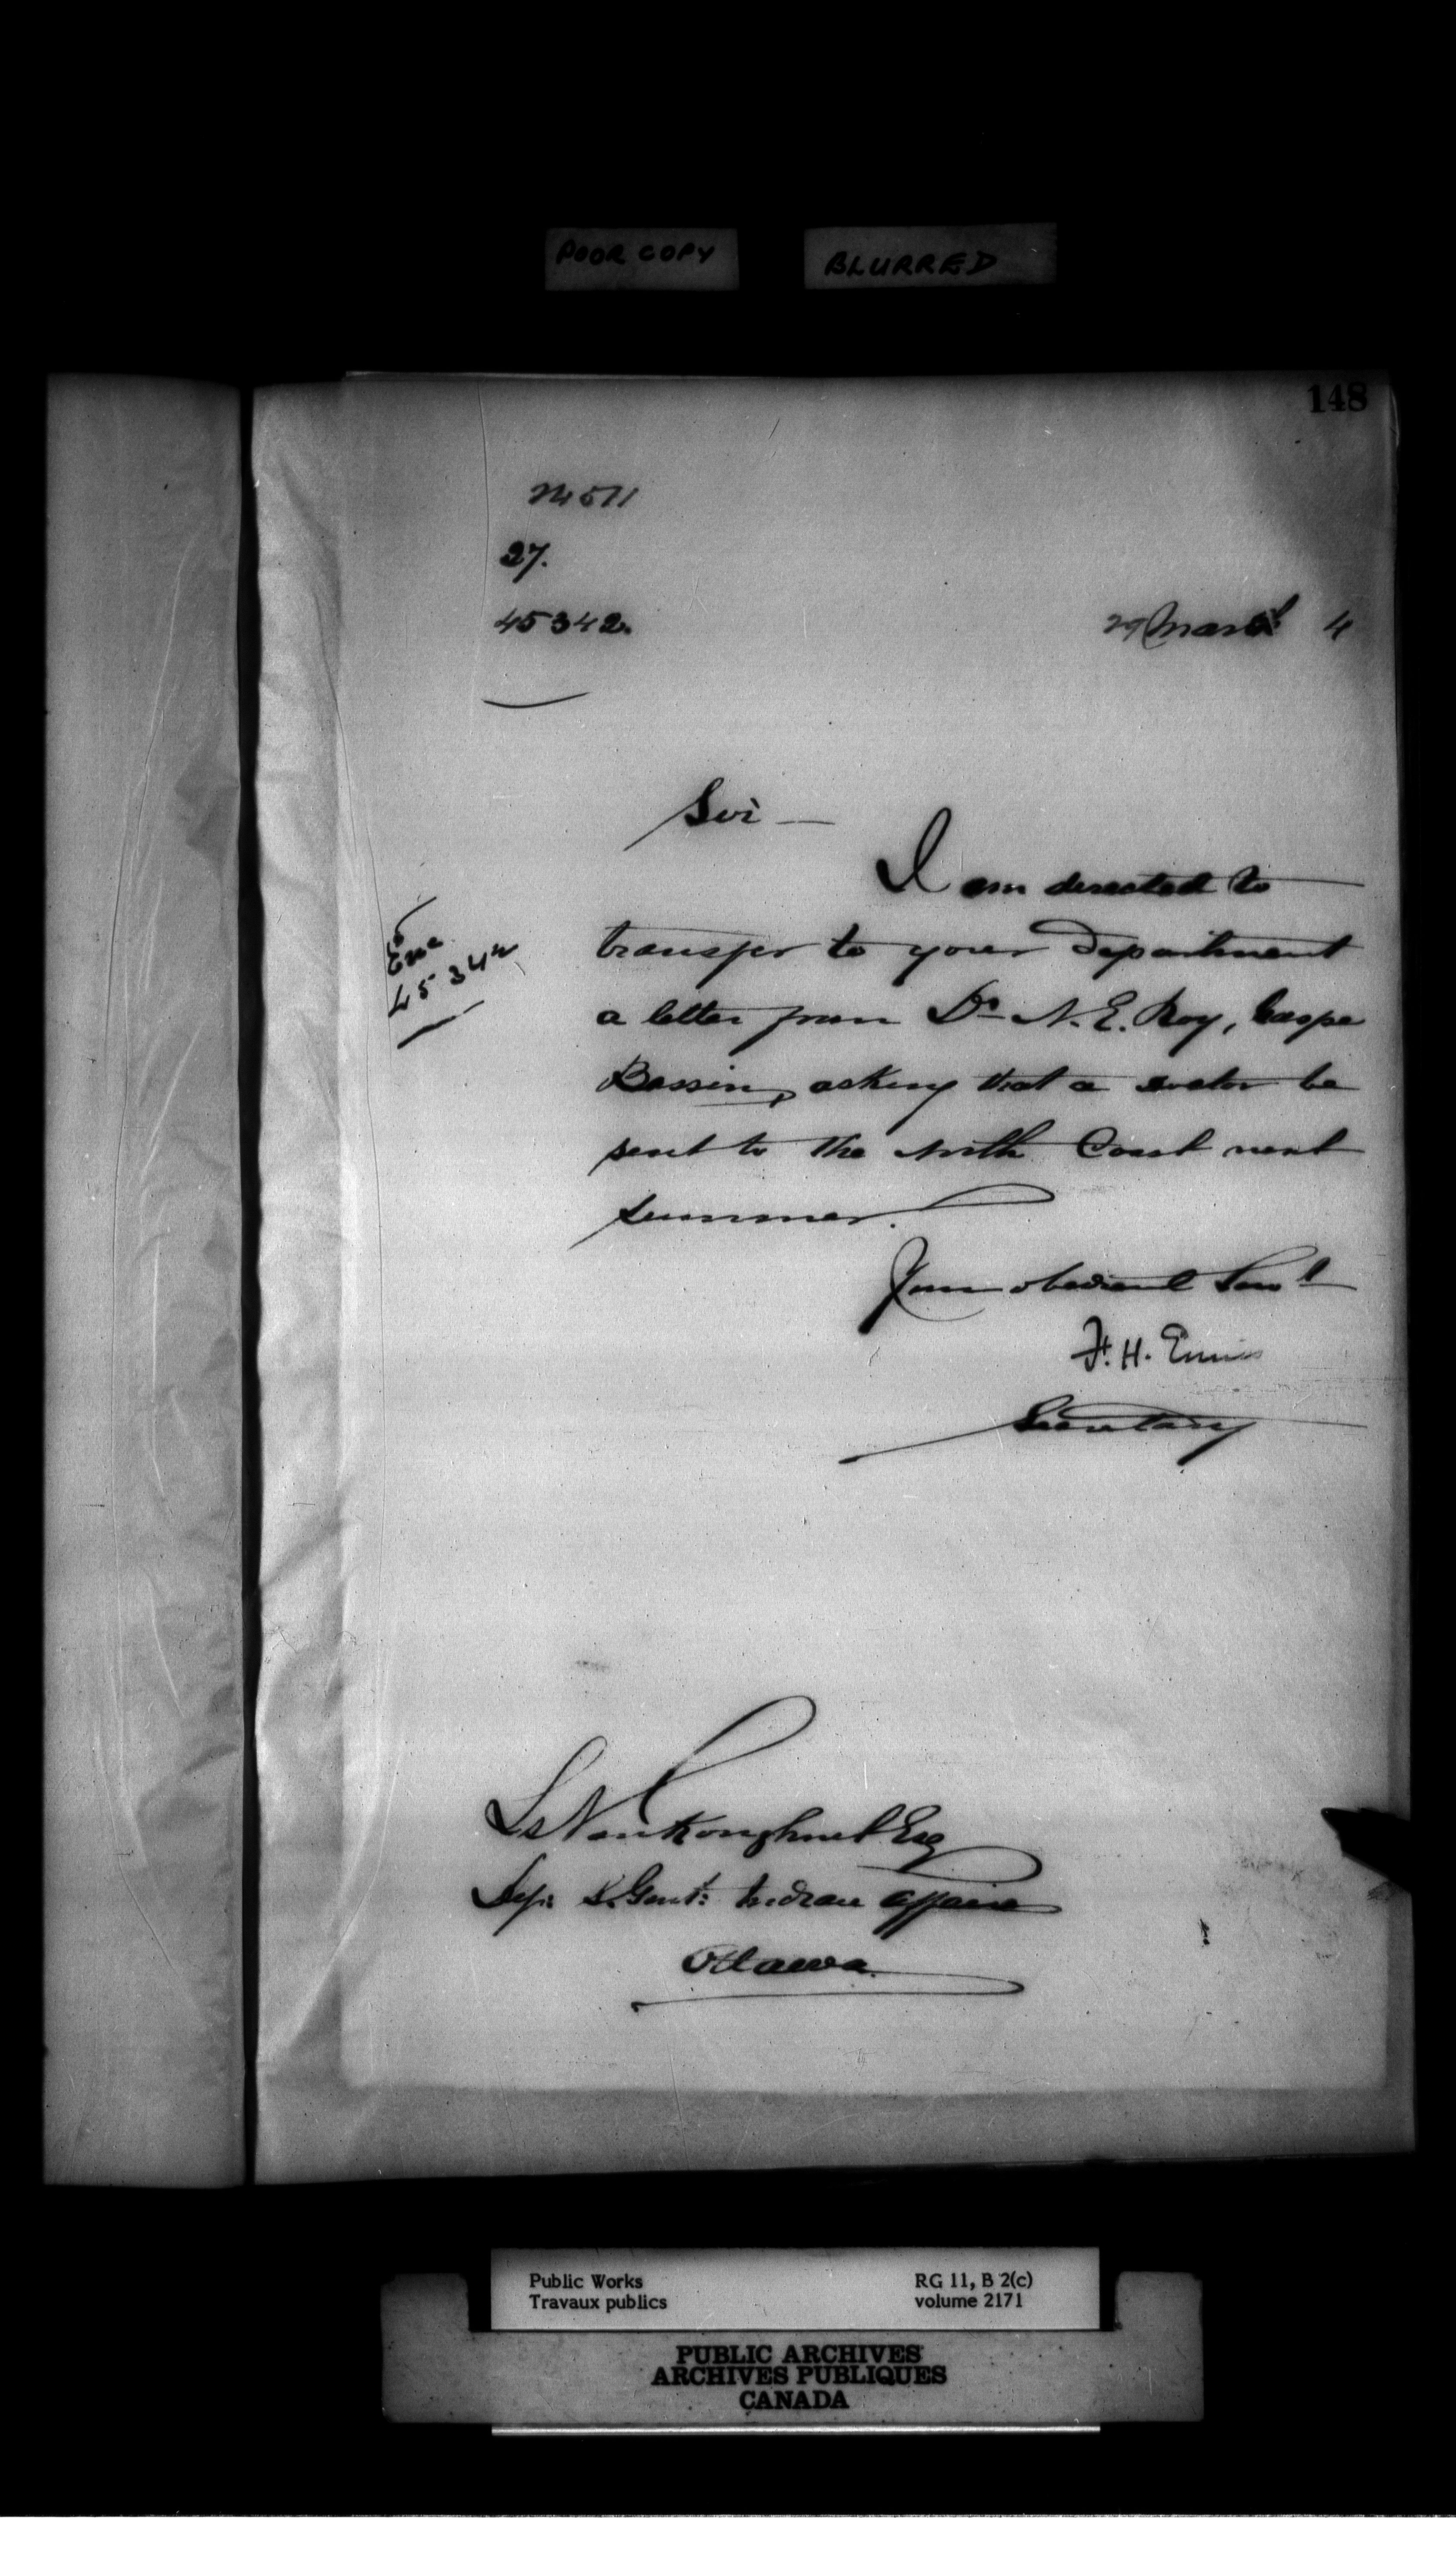 POOR COPY
BLURRED
148
24511
27.
45342.
29 March 4
Sir —
I am directed to
Enc
45342
transfer to your Department
a letter from Dr N. E. Roy, Gaspe
Bassin, asking that a doctor be
sent to the North Coast next
summer.
Your obedient Servt
F. H. Ennis
Secretary
Ls VanKoughnet Esq
Dep: S. Genl: Indian Affairs
Ottawa.
Public Works
Travaux publics
RG 11, B 2(c)
volume 2171
PUBLIC ARCHIVES
ARCHIVES PUBLIQUES
CANADA